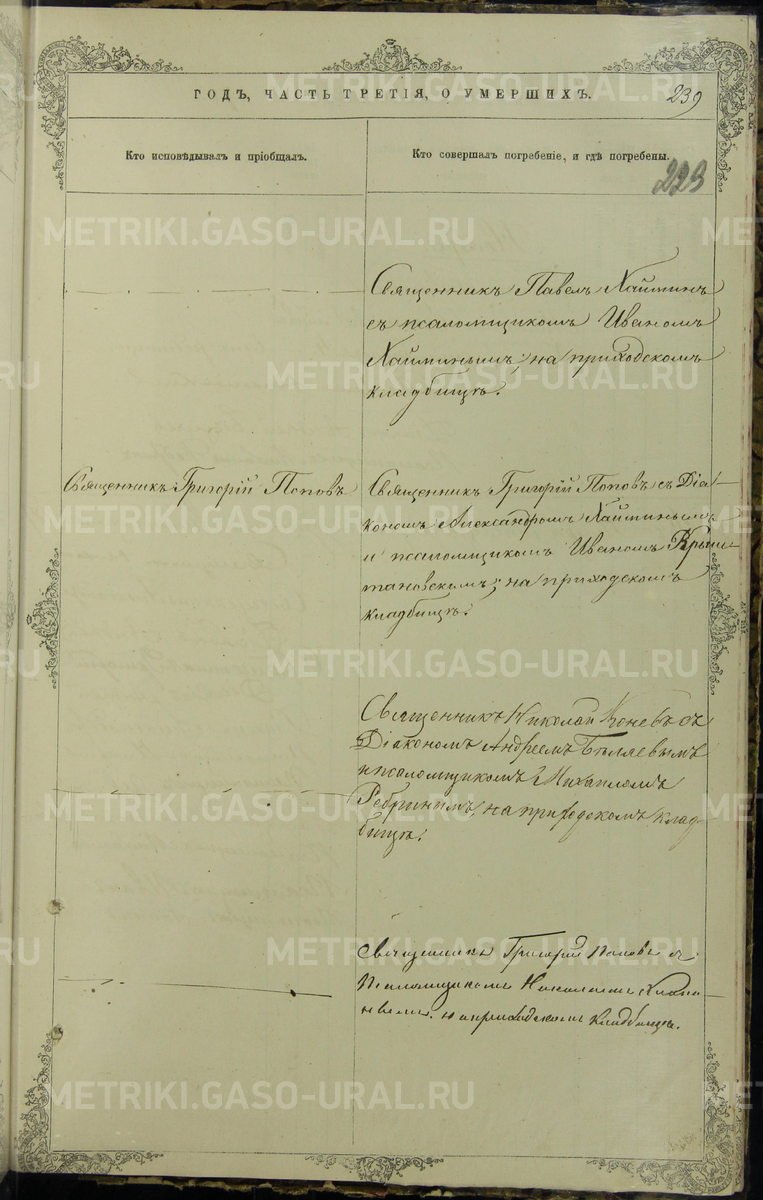 ГОДЪ, ЧАСТЬ ТРЕТІЯ, О УМЕРШИХЪ.
239
Кто исповѣдывалъ и пріобщалъ.
Кто совершалъ погребеніе, и гдѣ погребены.
223
Священникъ Павелъ Хайминъ
съ псаломщикомъ Иваномъ
Хайминымъ; на приходскомъ
кладбищѣ.
Священникъ Григорій Поповъ
Священникъ Григорій Поповъ съ Діа-
кономъ Александромъ Хайминымъ
и псаломщикомъ Иваномъ
тановскимъ; на приходскомъ
кладбищѣ.
Священникъ Николай Коневъ съ
Діакономъ Андреемъ Бѣляевымъ
и псаломщикомъ Михаиломъ
Ребринымъ, на приходскомъ клад-
бищѣ.
Священникъ Григорій Поповъ съ
Псаломщикомъ Николаемъ
на приходскомъ кладбищѣ.
METRIKI.GASO-URAL.RU